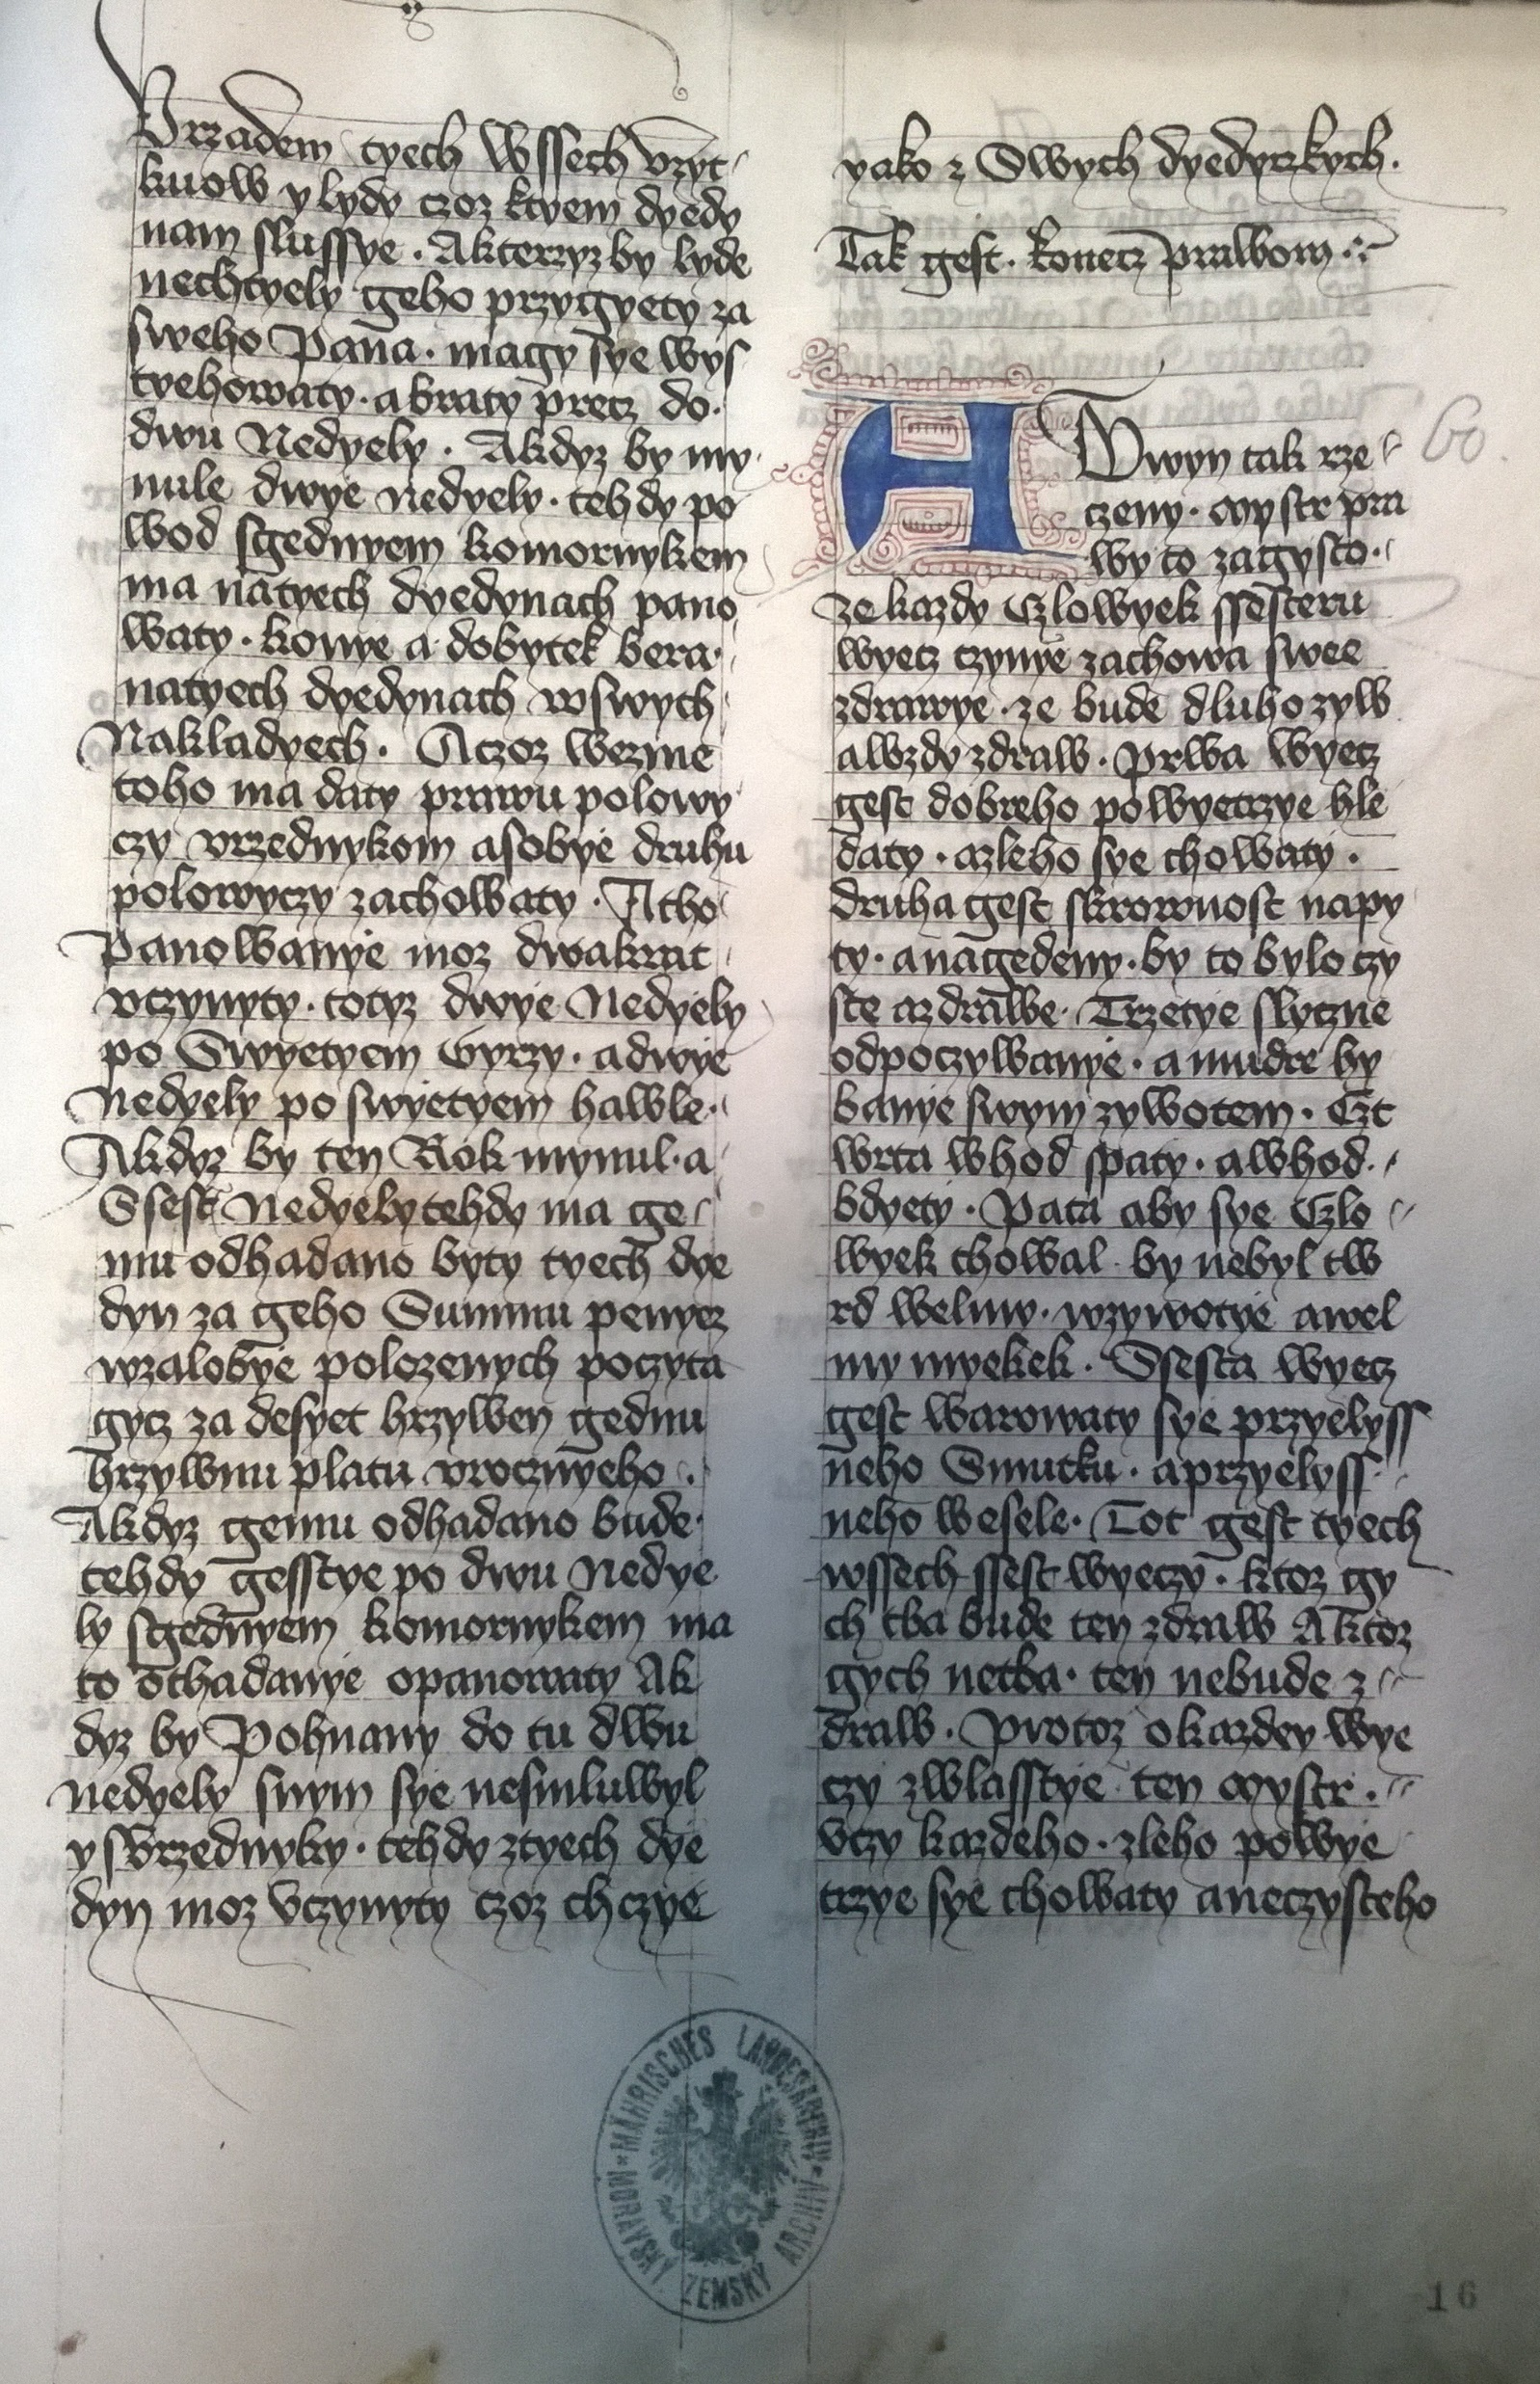 Vrzadem tyech wssech vzyt
kuow y lydy czoz ktyem dyedy
nam slussye. Akterzyz by lyde
nechtyely geho przygyety za
sweho Pana. magy sye wys
tyehowaty. a braty precz do.
dwu Nedyely. Akdyz by my
nule dwye nedyely. tehdy po
wod sgednyem komornykem
ma natyech dyedynach pano
waty. konye a dobytek bera.
natyech dyedynach wswych
Nakladyech. Aczoz wezme
toho ma daty prawu polowy
czy vrzednykom asobye druhu
polowyczy zachowaty. Atho
Panowanye moz dwakrat
vczynyty. totyz dwye Nedyely
po Swyetyem Gyrzy. a dwye
Nedyely po swyetyem hawle.
Akdyz by ten Rok mynul. a
Ssest Nedyely tehdy ma ge
mu odhadano byty tyech dye
dyn za geho Summu penyez
wzalobye polozenych poczyta
gycz za desyet hrzywen gednu
hrzywnu platu vrocznyeho.
Akdyz gemu odhadano bude.
tehdy gesstye po dwu Nedye
ly sgednyem komornykem ma
to othadanye opanowaty Ak
dyz by Pohnany do tu dwu
nedyely snym sye nesmluwyl
y sVrzednyky. tehdy ztyech dye
dyn moz Vczynyty czoz chczye
yako z Swych dyedyczkych.
Tak gest. konecz prawom
A
Dwyn tak rze
czeny. mystr pra
wy to zagysto.
ze kazdy Czlowyek ssesteru
wyecz czynye zachowa swee
zdrawye. ze bude dluho zyw
awzdy zdraw. prwa wyecz
gest dobreho powyetrzye hle
daty. azleho sye chowaty.
druha gest skrownost napy
ty. a nagedeny. by to bylo czy
ste azdrawe. Trzetye slyczne
odpoczywanye. a mudre hy
banye swym zywotem. Czt
wrta whod spaty. awhod.
bdyety. Pata aby sye Czlo
wyek chowal. by nebyl tw
rd welmy. wzywotye awel
my myekek. Ssesta wyecz
gest warowaty sye przyelyss
neho Smutku. aprzyelyss
neho wesele. Tot gest tyech
wssech ssest wyeczy. ktoz gy
ch tba bude ten zdraw Aktoz
gych netba. ten nebude z
draw. Protoz okazdey wye
czy zwlasstye ten mystr.
Vczy kazdeho. zleho powye
trzye sye chowaty aneczysteho
60.
MÄHRISCHES LANDESARCHIV
MORAVSKÝ ZEMSKÝ ARCHIV
16